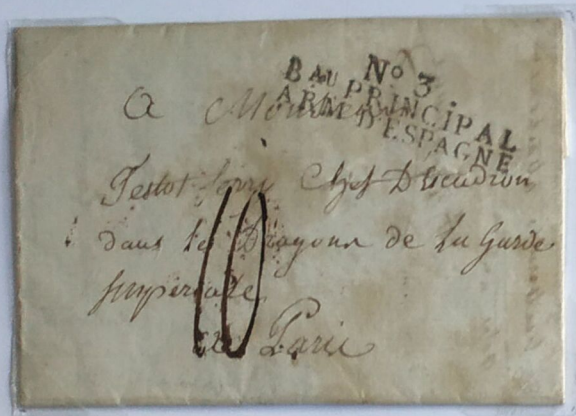 No 3
BAU PRINCIPAL
ARM. D'ESPAGNE
a Monsieur
Testot ferri Chef D'Escadron
dans les Dragons de la Garde
Imperiale
a Paris
10